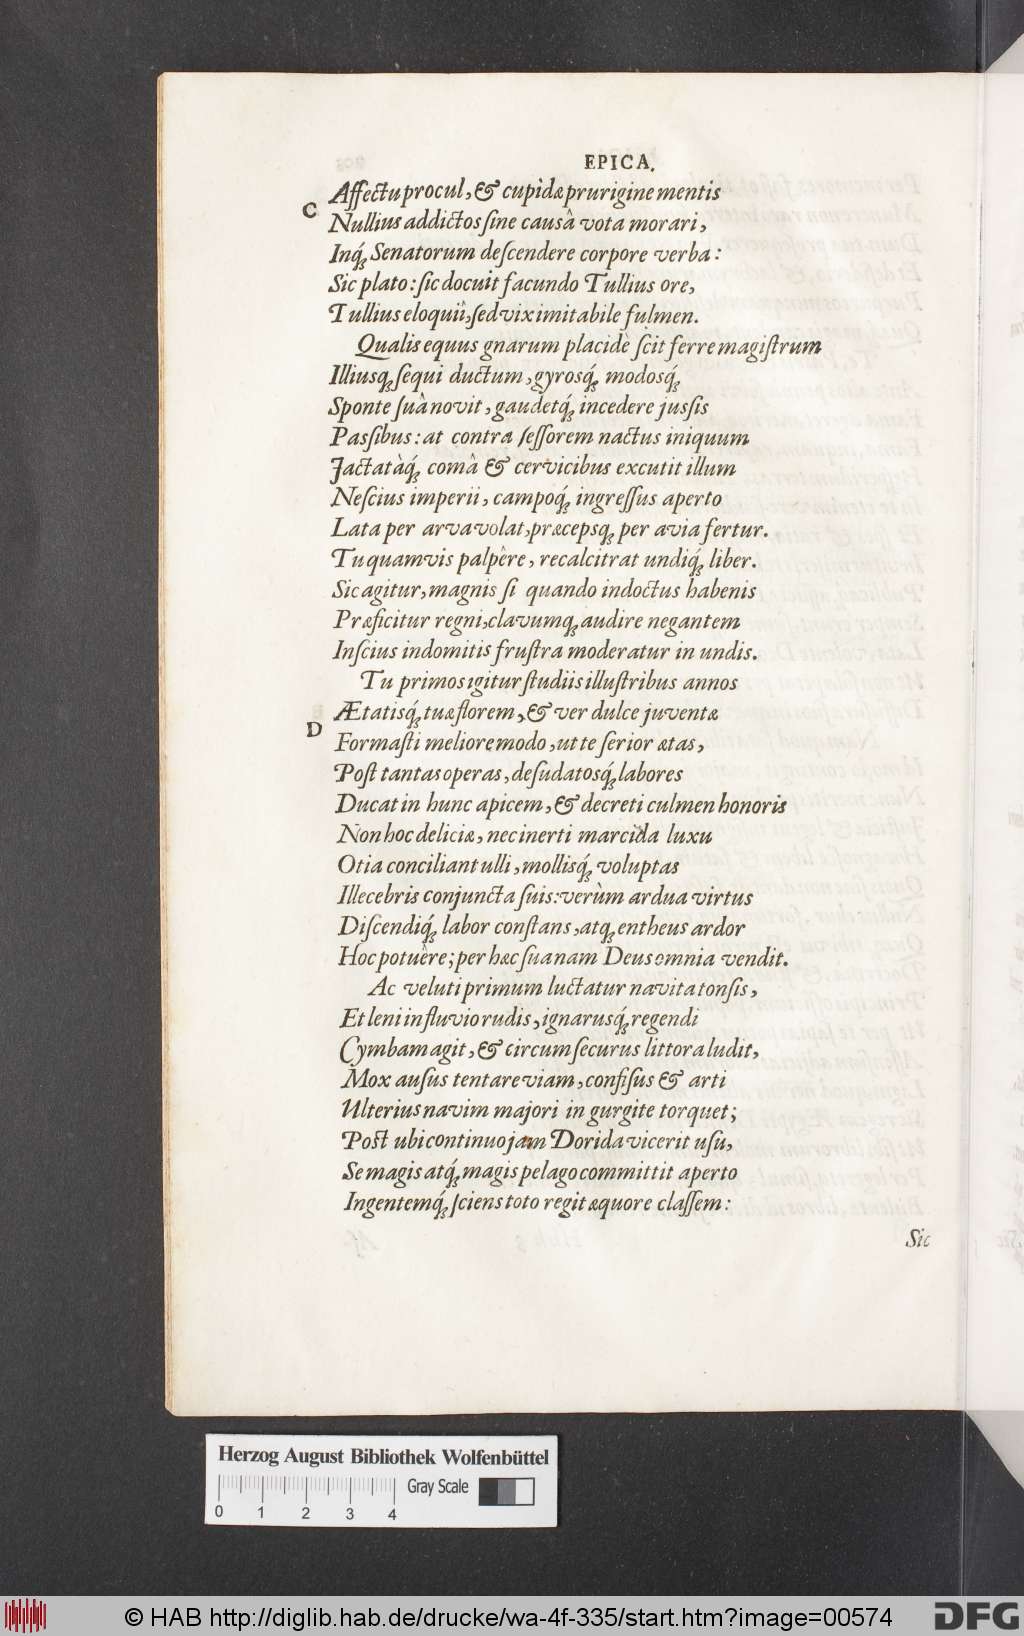 EPICA.
Affectu procul, & cupidæ prurigine mentis
C
Nullius addictos ſine causâ vota morari,
Inq́; Senatorum deſcendere corpore verba:
Sic plato: ſic docuit facundo Tullius ore,
Tullius eloquiî, ſed vix imitabile fulmen.
Qualis equus gnarum placidè ſcit ferre magiſtrum
Illiusq; ſequi ductum, gyrosq́; modosq́;
Sponte ſuâ novit, gaudetq́; incedere juſsis
Paſsibus: at contra ſeſſorem nactus iniquum
Jactatàq́; comâ & cervicibus excutit illum
Neſcius imperii, campoq́; ingreſſus aperto
Lata per arva volat, præcepsq; per avia fertur.
Tu quamvis palpêre, recalcitrat undiq́; liber.
Sic agitur, magnis ſi quando indoctus habenis
Præficitur regni, clavumq; audire negantem
Inſcius indomitis fruſtra moderatur in undis.
Tu primos igitur ſtudiis illuſtribus annos
Ætatisq́; tuæ florem, & ver dulce juventæ
D
Formaſti meliore modo, ut te ſerior ætas,
Poſt tantas operas, deſudatosq́; labores
Ducat in hunc apicem, & decreti culmen honoris
Non hoc deliciæ, nec inerti marcida luxu
Otia conciliant ulli, mollisq́; voluptas
Illecebris conjuncta ſuis: verùm ardua virtus
Diſcendiq́; labor conſtans, atq; entheus ardor
Hoc potuêre; per hæc ſua nam Deus omnia vendit.
Ac veluti primum luctatur navita tonſis,
Et leni in fluvio rudis, ignarusq́; regendi
Cymbam agit, & circum ſecurus littora ludit,
Mox auſus tentare viam, confiſus & arti
Ulterius navim majori in gurgite torquet;
Poſt ubi continuo jam Dorida vicerit uſu,
Se magis atq́; magis pelago committit aperto
Ingentemq́; ſciens toto regit æquore claſſem:
Sic
Herzog August Bibliothek Wolfenbüttel
Gray Scale
0 1 2 3 4
© HAB http://diglib.hab.de/drucke/wa-4f-335/start.htm?image=00574
DFG